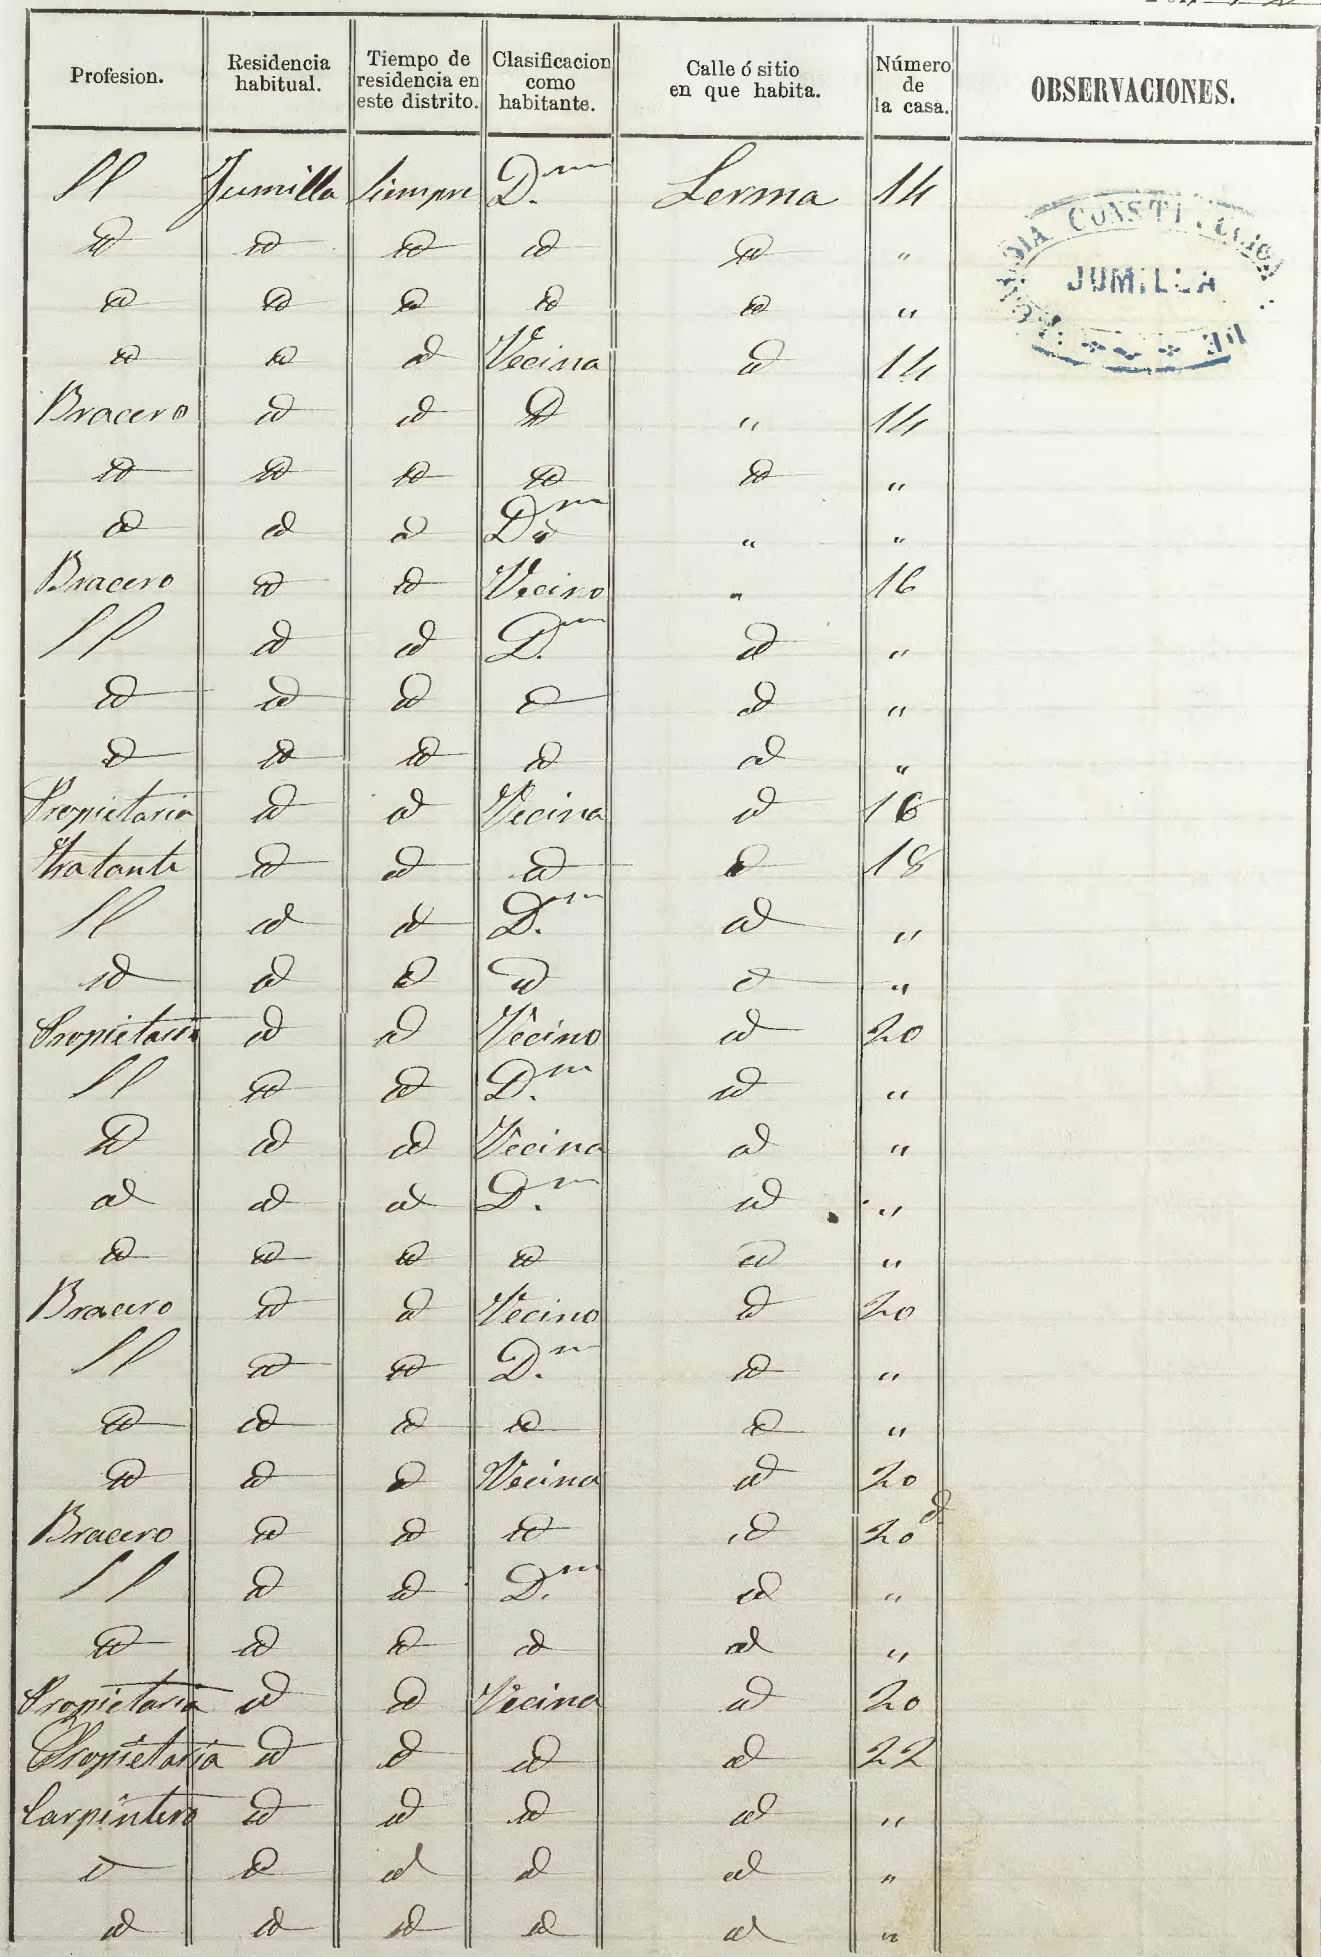 Profesion. Residencia habitual. Tiempo de residencia en este distrito. Clasificacion como habitante. Calle ó sitio en que habita. Número de la casa. OBSERVACIONES.
Jumilla siempre D.m Lerma 14
id id id id id "
id id id id id "
id id id Vecina id 14
Bracero id id id " 14
id id id id id "
id id id D.m " "
Bracero id id Vecino " 16
id id D.m id "
id id id id id "
id id id id id "
Propietaria id id Vecina id 16
tratante id id id id 18
id id D.m id "
id id id id id "
Propietario id id Vecino id 20
id id D.m id "
id id id Vecina id "
id id id D.m id "
id id id id id "
Bracero id id Vecino id 20
id id D.m id "
id id id id id "
id id id Vecina id 20
Bracero id id id id 20 d.
id id D.m id "
id id id id id "
Propietaria id id Vecina id 20
Propietaria id id id id 22
Carpintero id id id id "
id id id id id "
id id id id id "
JUMILLA